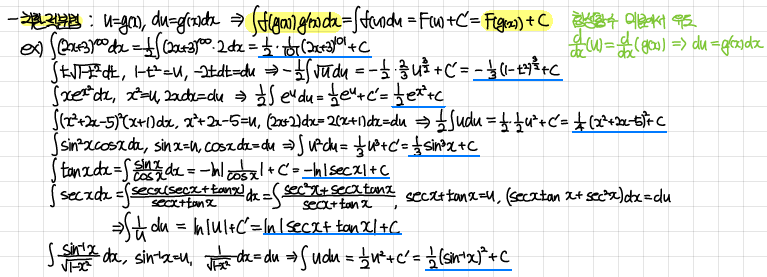 : u=g(x), du=g'(x)dx ⇒ ∫f(g(x))g'(x)dx=∫f(u)du=F(u)+C'=F(g(x))+C
d/dx(u)=d/dx(g(x)) ⇒ du=g'(x)dx
ex) ∫(2x+3)^100 dx=1/2∫(2x+3)^100·2dx=1/2·1/101(2x+3)^101+C
∫t√(1-t²)dt, 1-t²=u, -2tdt=du ⇒ -1/2∫√u du=-1/2·2/3u^(3/2)+C'=-1/3(1-t²)^(3/2)+C
∫xe^(x²)dx, x²=u, 2xdx=du ⇒ 1/2∫e^u du=1/2e^u+C'=1/2e^(x²)+C
∫(x²+2x-5)²(x+1)dx, x²+2x-5=u, (2x+2)dx=2(x+1)dx=du ⇒ 1/2∫udu=1/2·1/2u²+C'=1/4(x²+2x-5)²+C
∫sin²xcosxdx, sinx=u, cosxdx=du ⇒ ∫u²du=1/3u³+C'=1/3sin³x+C
∫tanxdx=∫sinx/cosx dx=-ln|1/cosx|+C'=-ln|secx|+C
∫secxdx=∫secx(secx+tanx)/(secx+tanx) dx=∫(sec²x+secxtanx)/(secx+tanx), secx+tanx=u, (secxtanx+sec²x)dx=du
⇒∫1/u du=ln|u|+C'=ln|secx+tanx|+C
∫sin⁻¹x/√(1-x²) dx, sin⁻¹x=u, 1/√(1-x²) dx=du ⇒ ∫udu=1/2u²+C'=1/2(sin⁻¹x)²+C